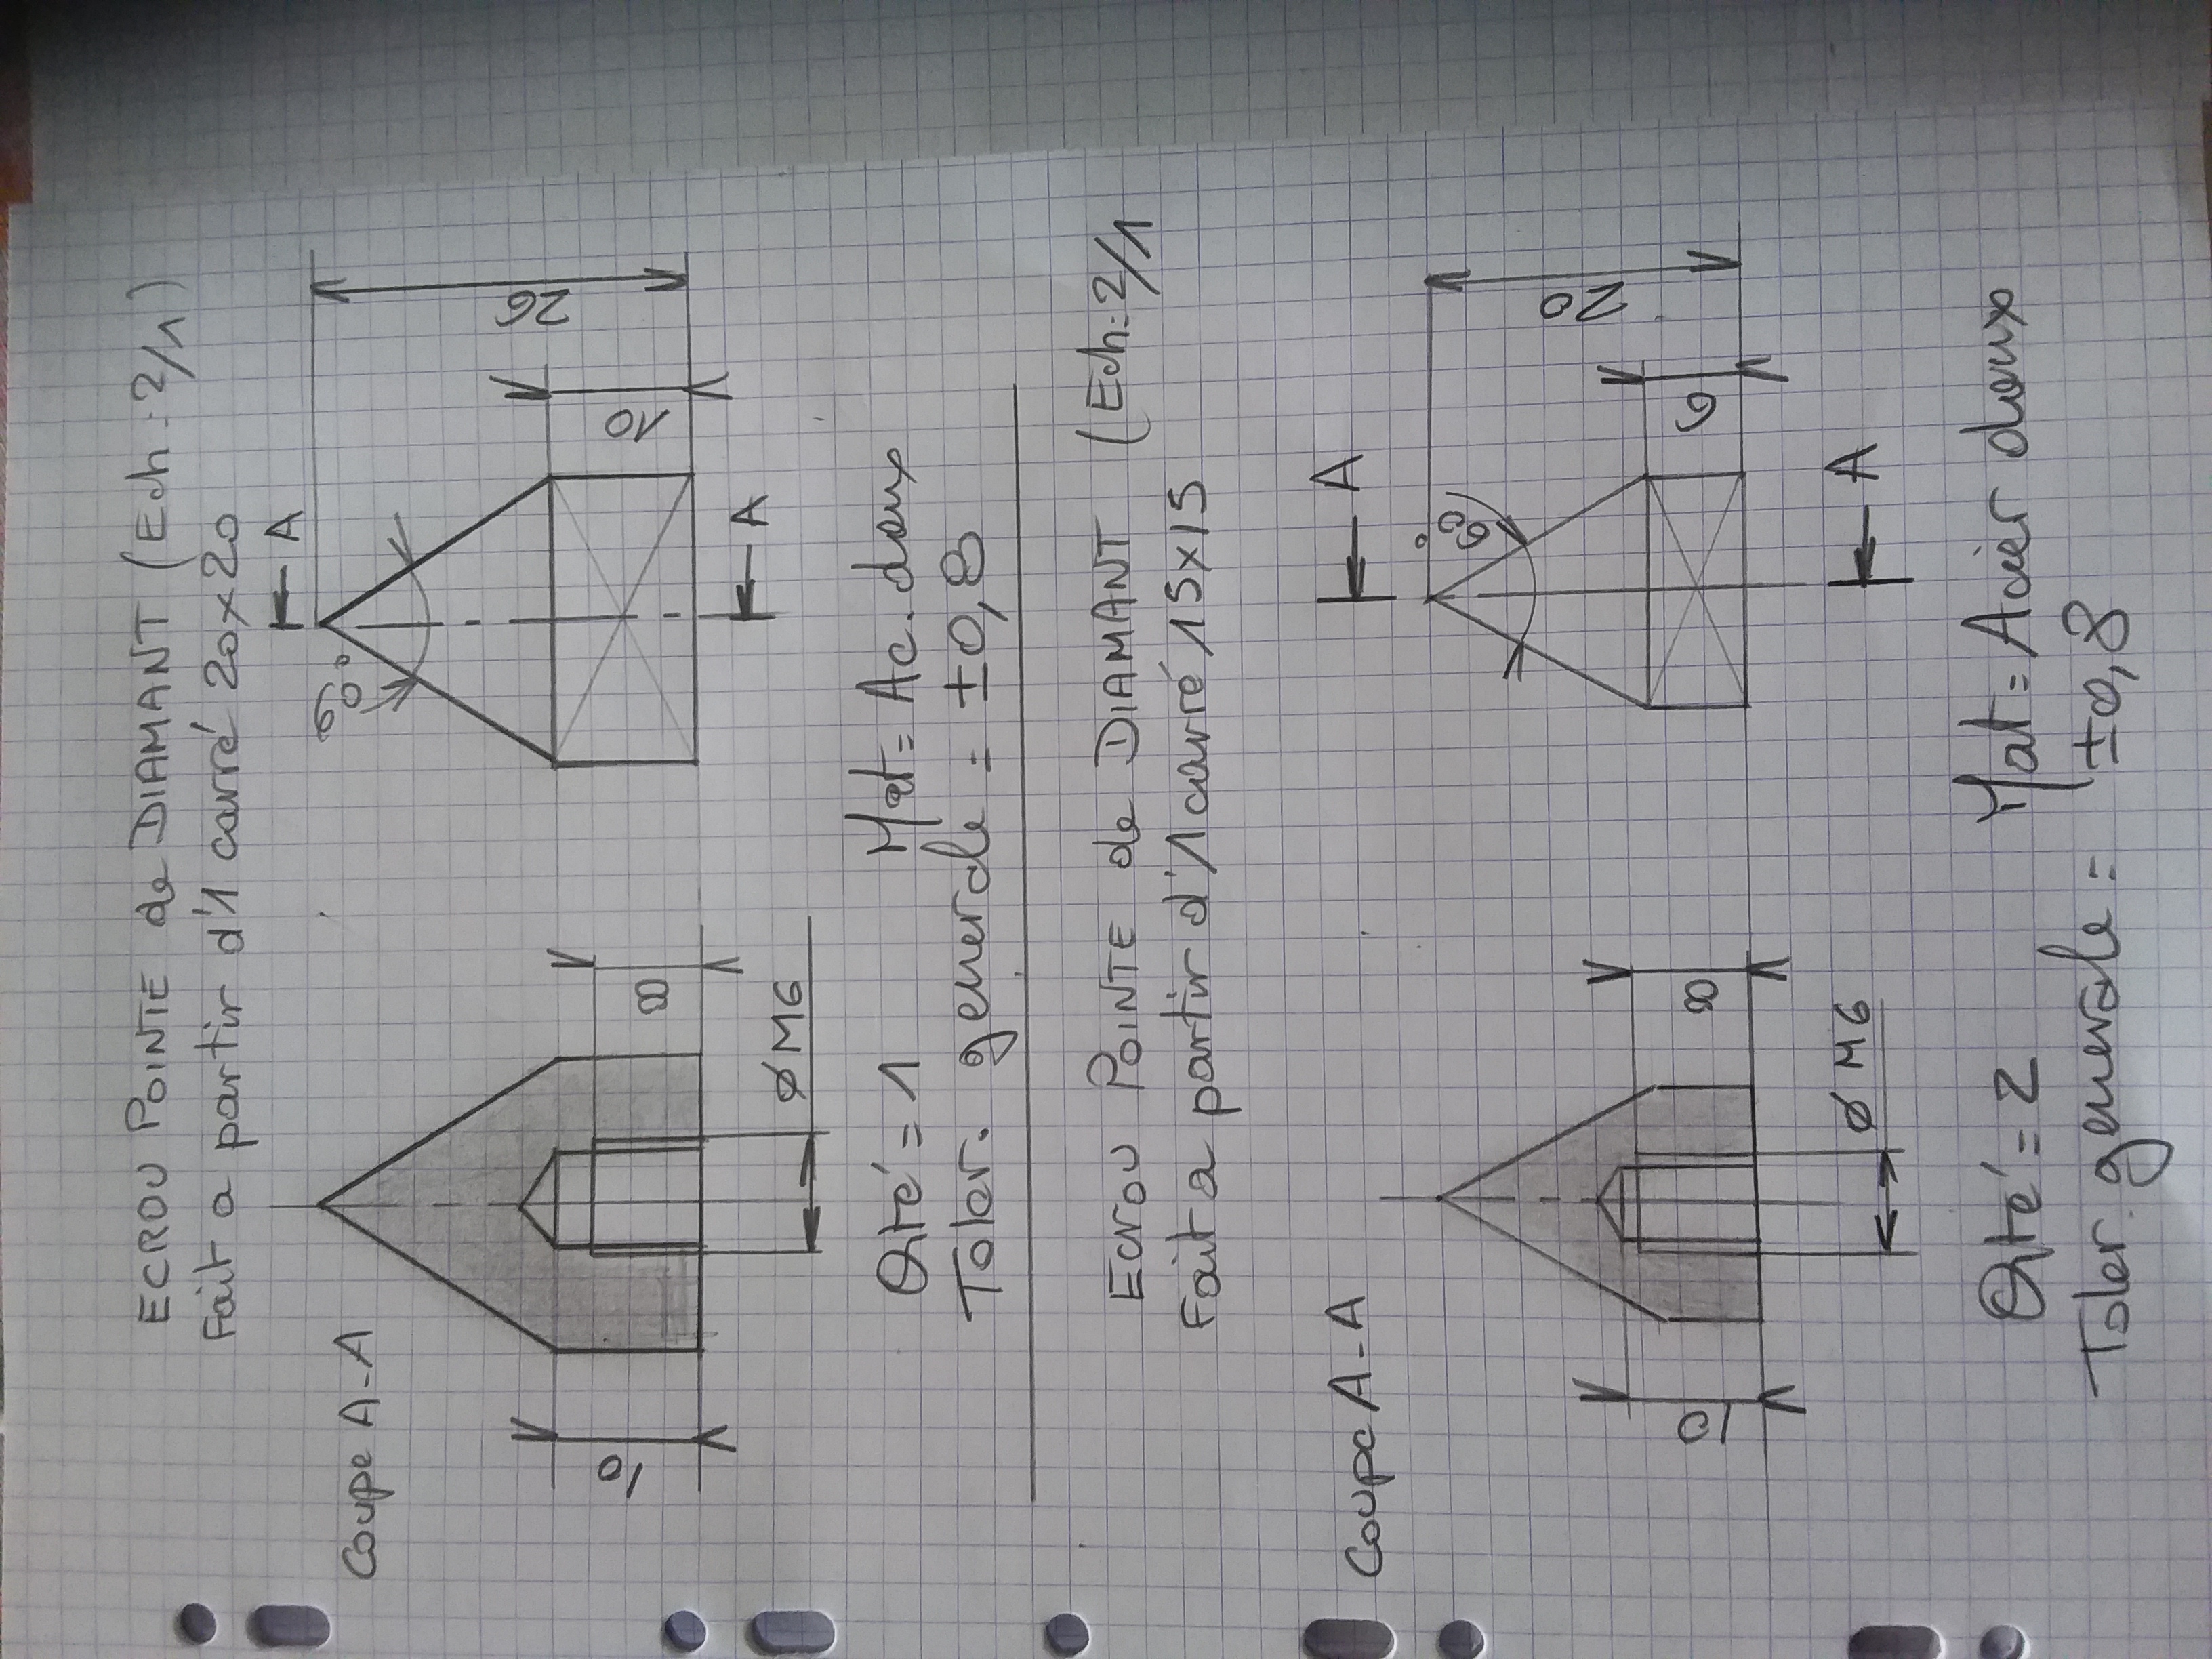 ECROU POINTE de DIAMANT (Ech: 2/1)
Fait a partir d'1 carré 20x20
Coupe A-A
A
60°
26
10
A
10
8
ØM6
Qté = 1 Mat = Ac. doux
Toler. generale = ±0,8
Ecrou POINTE de DIAMANT (Ech: 2/1
Fait a partir d'1 carré 15x15
Coupe A-A
A
60°
20
6
A
10
8
ØM6
Qté = 2 Mat = Acier doux
Toler. generale = ±0,8